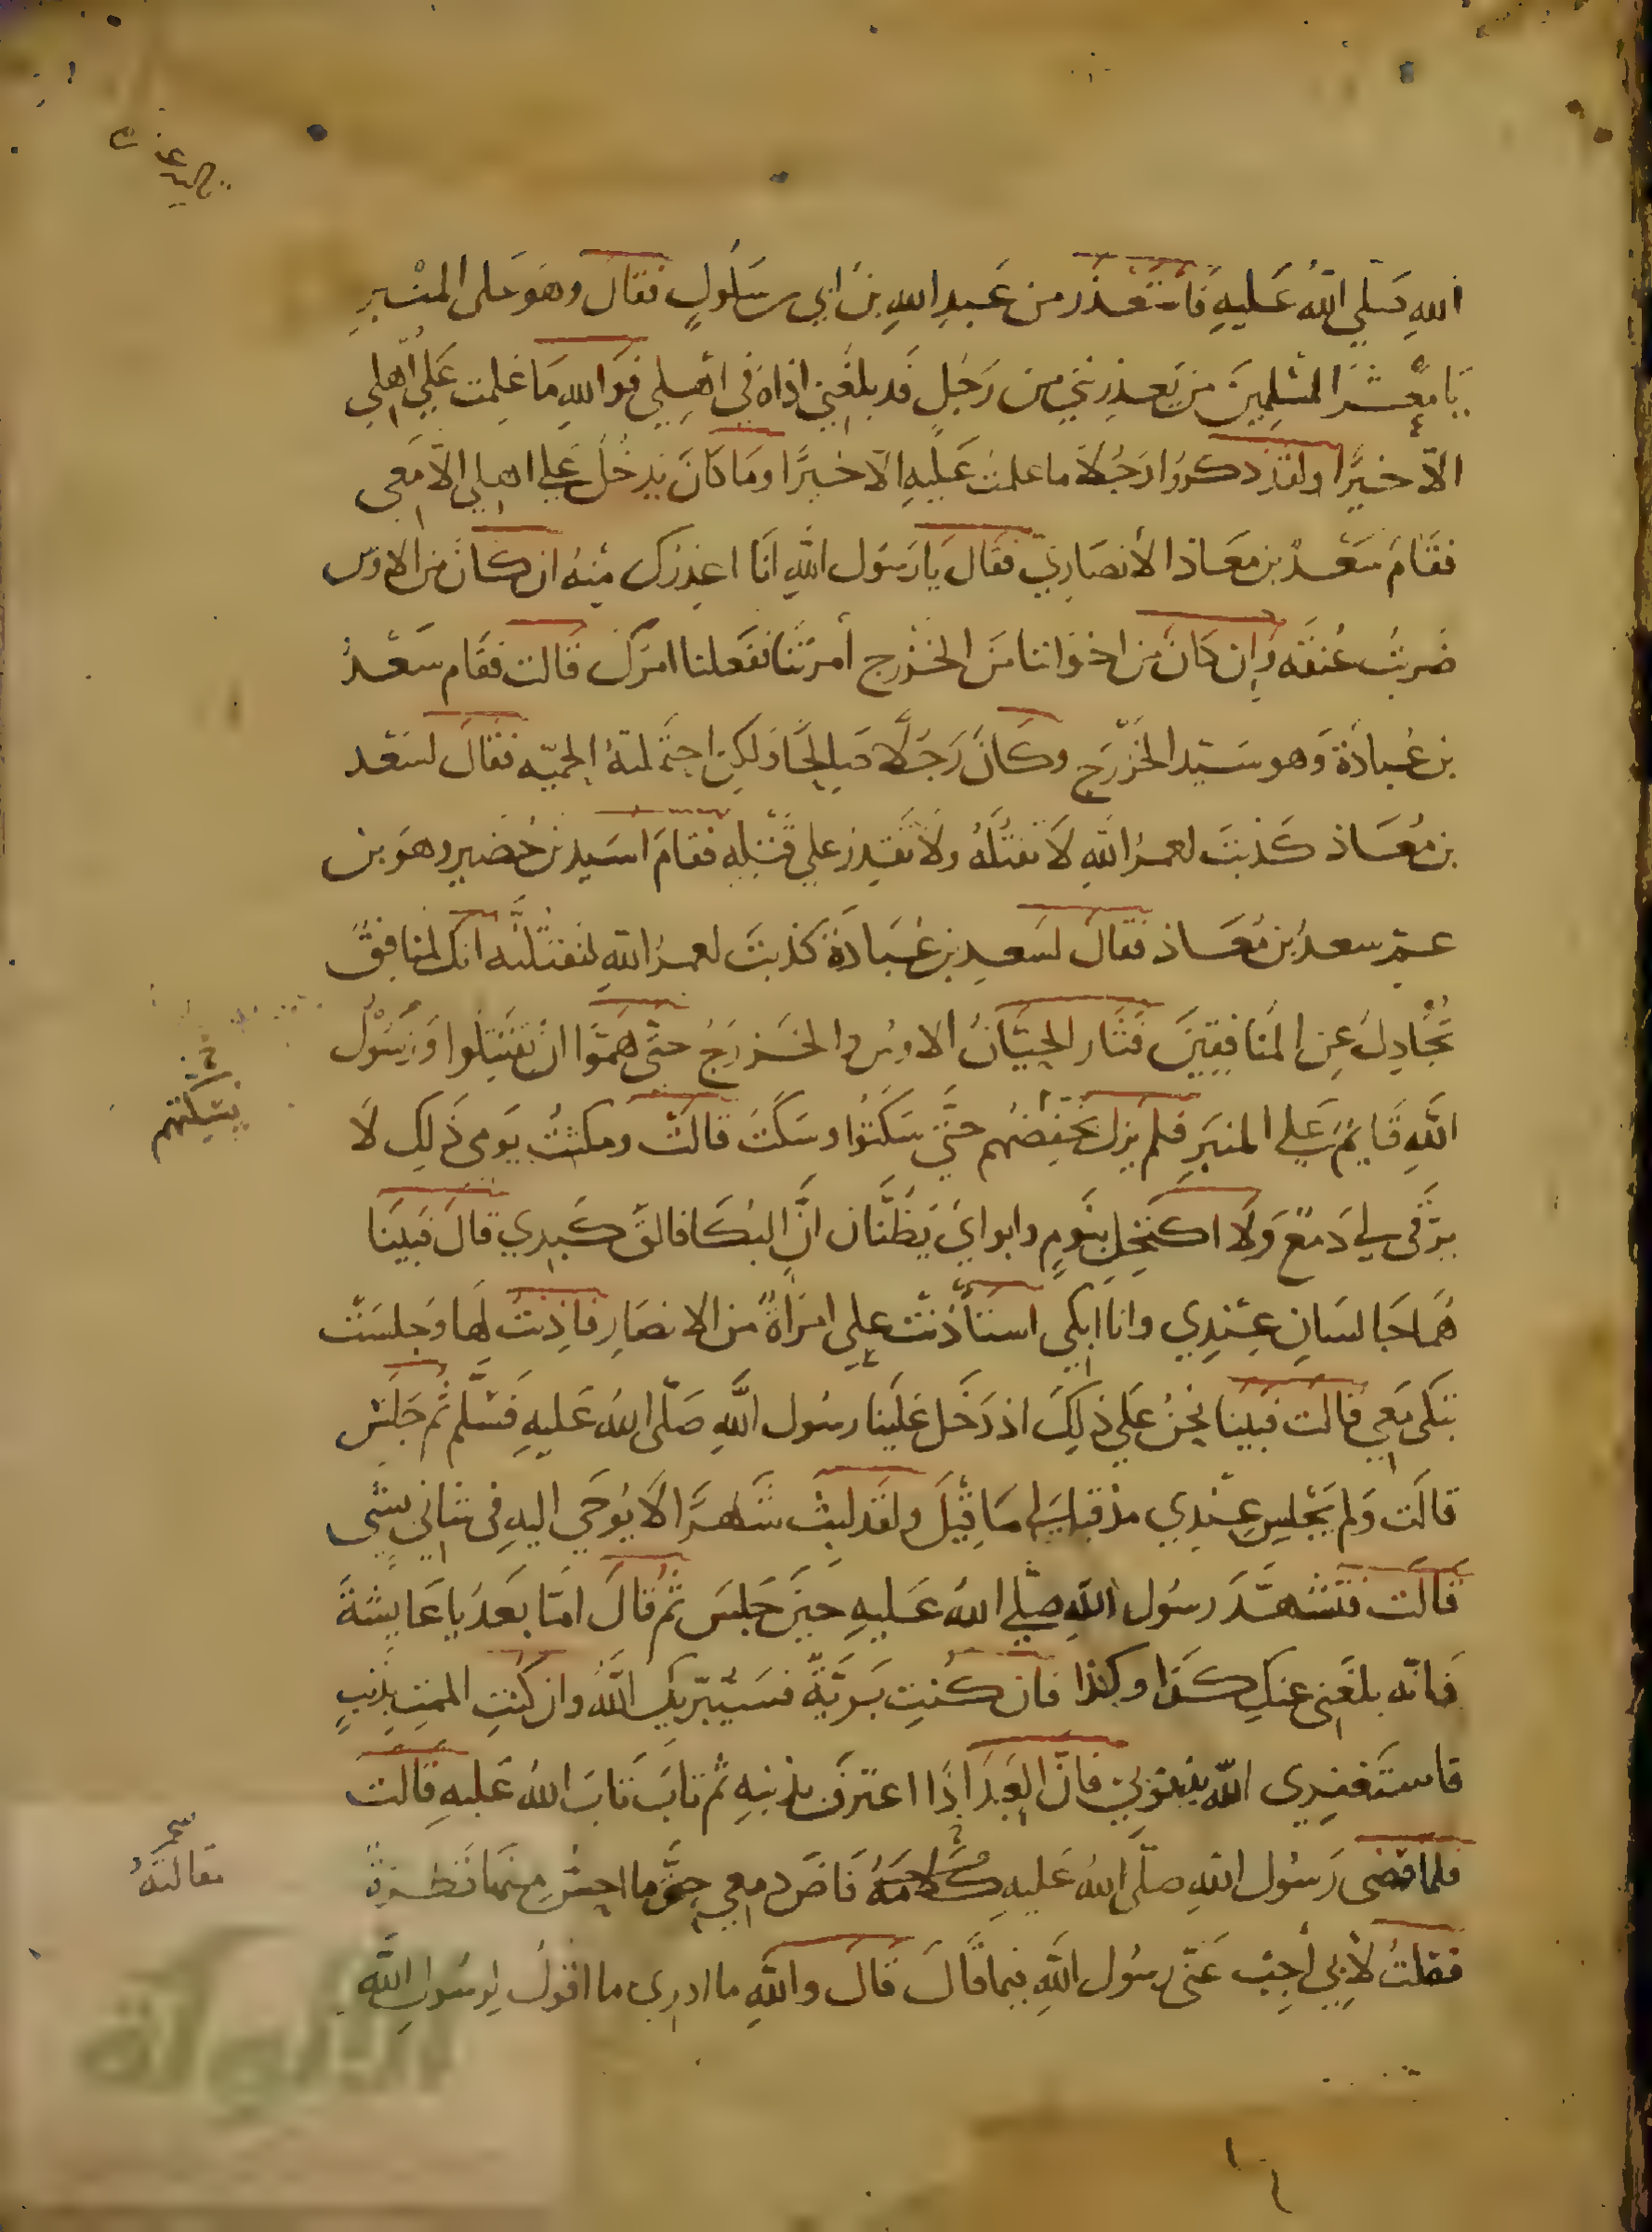 الله صلي الله عليه فاستعذر من عبد الله بن ابي سلول فقال وهو على المنبر
يا معشر المسلمين من يعذرني من رجل قد بلغني اذاه في اهلي فوالله ما علمت علي اهلي
الا خيرا ولقد ذكروا رجلا ما علمت عليه الا خيرا وما كان يدخل علي اهلي الا معي
فقام سعد بن معاذ الأنصاري فقال يا رسول الله انا اعذرك منه ان كان من الاوس
ضربت عنقه وان كان من اخواننا من الخزرج أمرتنا نفعلنا امرك قالت فقام سعد
بن عبادة وهو سيد الخزرج وكان رجلا صالحا ولكن اجتملته الحميه فقال لسعد
بن معاذ كذبت لعمر الله لا تقتله ولا تقدر علي قتله فقام اسيد بن حضير وهو بن
عم سعد بن معاذ فقال لسعد بن عبادة كذبت لعمر الله لنقتلنه انك لمنافق
تجادل عن المنافقين فثار الحيان الاوس والخزرج حتى هموا ان يقتتلوا ورسول
الله قايم علي المنبر فلم يزل يخفضهم حتى سكتوا وسكت قالت ومكثت يومي ذلك لا
يرقى لي دمع ولا اكتحل بنوم وابواي يظنان ان البكا فالق كبدي قال فبينا
هما جالسان عندي وانا ابكي استأذنت علي امراة من الانصار فاذنت لها وجلست
تبكي معي قالت فبينا نحن علي ذلك اذ دخل علينا رسول الله صلى الله عليه فسلم ثم جلس
قالت ولم يجلس عندي مذ قيل لي ما قيل ولقد لبث شهرا لا يوحي اليه في شاني بشي
قالت فتشهد رسول الله صلي الله عليه حين جلس ثم قال اما بعد يا عايشة
فانه بلغني عنك كذا وكذا فان كنت برية فسيبريك الله وان كنت الممت بذنب
فاستغفري الله بنتوبي فان العبد اذا اعترف بذنبه ثم تاب تاب الله عليه قالت
فلما قضى رسول الله صلى الله عليه كلامه قاض دمعي حتى ما احس منهما قطرة
فقلت لأبي أجب عني رسول الله فيما قال قال والله ما ادري ما اقول لرسول الله
يسكتهم
مقالته
الألوكة